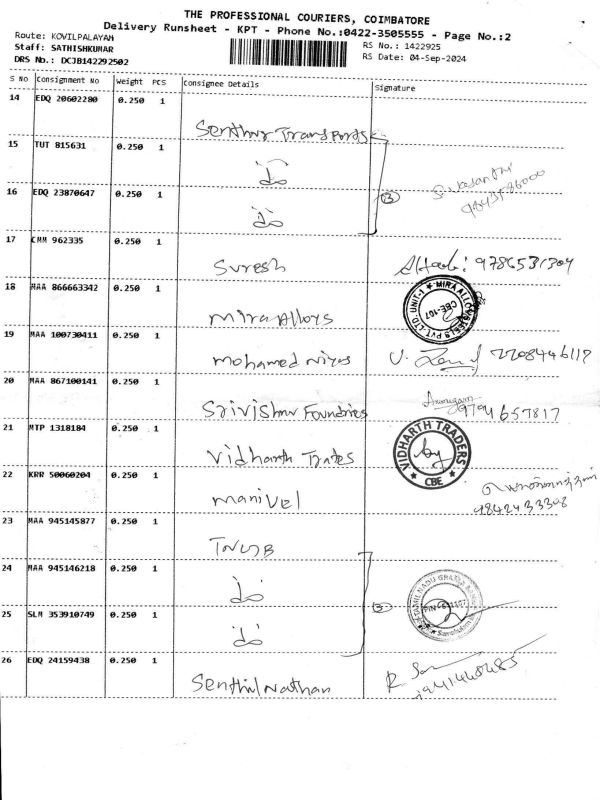 THE PROFESSIONAL COURIERS, COIMBATORE
Delivery Runsheet - KPT - Phone No.:0422-3505555 - Page No.:2
Route: KOVILPALAYAM
Staff: SATHISHKUMAR
DRS No.: DCJB142292502
RS No.: 1422925
RS Date: 04-Sep-2024
S No Consignment No Weight PCS Consignee Details Signature
14 EDQ 20602280 0.250 1
Senthur Transports
15 TUT 815631 0.250 1
16 EDQ 23870647 0.250 1
③
17 CMM 962335 0.250 1
Suresh 9786531304
18 MAA 866663342 0.250 1
Mira Alloys
MIRA ALLOY STEELS PVT. LTD. UNIT-1
CBE-107
19 MAA 100730411 0.250 1
Mohamed Niyas 7708446117
20 MAA 867100141 0.250 1
Srivishnu Foundries Arumugam 9794657817
21 MTP 1318184 0.250 1
Vidharth Trades
VIDHARTH TRADERS
CBE
22 KRR 50060204 0.250 1
Manivel
9842433308
23 MAA 945145877 0.250 1
TNGB
24 MAA 945146218 0.250 1
③
TAMILNADU GRAMA BANK
25 SLM 353910749 0.250 1
26 EDQ 24159438 0.250 1
Senthil Nathan